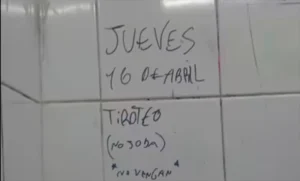 JUEVES
16 DE ABRIL
TIROTEO
(NO JODA)
*NO VENGAN*